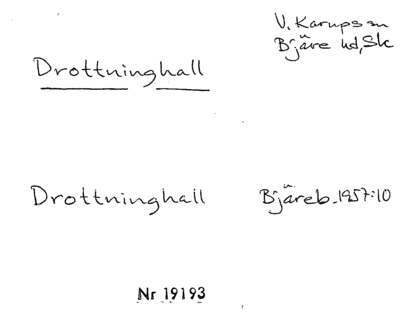 V. Karups sn
Bjäre hd, Sk
Drottninghall
Drottninghall Bjäreb. 1957:10
Nr 19193